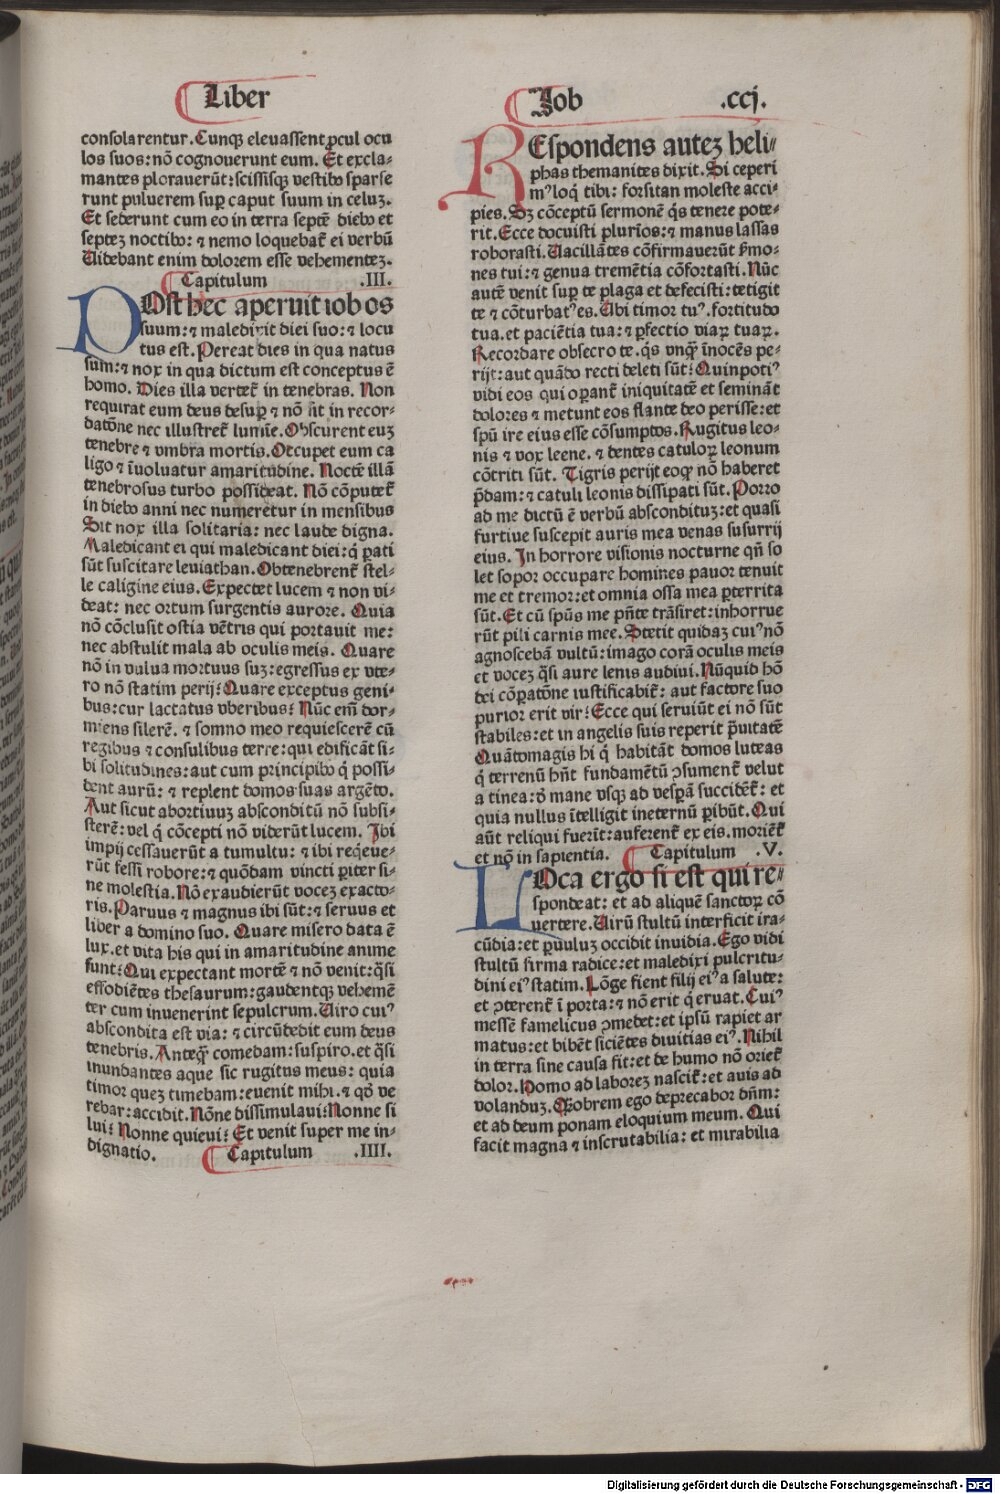 Liber
consolarentur. Cunqꝫ eleuassent ꝓcul ocu
los suos: nō cognouerunt eum. Et excla-
mantes plorauerūt: scissisqꝫ vestibꝰ sparse
runt puluerem suꝑ caput suum in celuꝫ.
Et sederunt cum eo in terra septē diebꝰ et
septeꝫ noctibꝰ: ⁊ nemo loquebat᷑ ei verbū
Uidebant enim dolorem esse vehementeꝫ.
Capitulum .III.
POst hec aperuit iob os
suum: ⁊ maledixit diei suo: ⁊ locu
tus est. Pereat dies in qua natus
sum: ⁊ nox in qua dictum est conceptus ē
homo. Dies illa vertet᷑ in tenebras. Non
requirat eum deus desuꝑ ⁊ nō sit in recor-
datōne nec illustret᷑ lumīe. Obscurent euꝫ
tenebre ⁊ vmbra mortis. Occupet eum ca
ligo ⁊ īuoluatur amaritudine. Noctē illā
tenebrosus turbo possideat. Nō cōputet᷑
in diebꝰ anni nec numeretur in mensibus
Sit nox illa solitaria: nec laude digna.
Maledicant ei qui maledicant diei: q̇ ꝑati
sūt suscitare leuiathan. Obtenebrent᷑ stel-
le caligine eius. Expectet lucem ⁊ non vi-
deat: nec ortum surgentis aurore. Quia
nō cōclusit ostia vētris qui portauit me:
nec abstulit mala ab oculis meis. Quare
nō in vulua mortuus suꝫ: egressus ex vte-
ro nō statim perij? Quare exceptus geni-
bus: cur lactatus vberibus? Nūc em̄ dor-
miens silerē. ⁊ somno meo requiescerē cū
regibus ⁊ consulibus terre: qui edificāt si-
bi solitudines: aut cum principibꝰ q̇ possi-
dent aurū: ⁊ replent domos suas argēto.
Aut sicut abortiuuꝫ absconditū nō subsi-
sterē: vel q̇ cōcepti nō viderūt lucem. Ibi
impij cessauerūt a tumultu: ⁊ ibi reqēue-
rūt fessi robore: ⁊ quōdam vincti ꝑiter si-
ne molestia. Nō exaudierūt voceꝫ exacto-
ris. Paruus ⁊ magnus ibi sūt: ⁊ seruus et
liber a domino suo. Quare misero data ē
lux. et vita his qui in amaritudine anime
sunt? Qui expectant mortē ⁊ nō venit: q̄si
effodiētes thesaurum: gaudentqꝫ vehemē
ter cum inuenerint sepulcrum. Uiro cuiꝰ
abscondita est via: ⁊ circūdedit eum deus
tenebris. Anteq̄ꝫ comedam: suspiro. et q̄si
inundantes aque sic rugitus meus: quia
timor queꝫ timebam: euenit mihi. ⁊ qḋ ve
rebar: accidit. Nōne dissimulaui? Nonne si
lui? Nonne quieui? Et venit super me in-
dignatio. Capitulum .IIII.
Job .ccj.
REspondens auteꝫ heli-
phas themanites dixit. Si ceperi
mꝰ loq̇ tibi: forsitan moleste acci-
pies. Sꝫ cōceptū sermonē q̇s tenere pote-
rit. Ecce docuisti plurios: ⁊ manus lassas
roborasti. Uacillātes cōfirmauerūt s̄mo-
nes tui: ⁊ genua tremētia cōfortasti. Nūc
autē venit suꝑ te plaga et defecisti: tetigit
te ⁊ cōturbatꝰ es. Ubi timor tuꝰ. fortitudo
tua. et paciētia tua: ⁊ ꝑfectio viaꝝ tuaꝝ.
Recordare obsecro te. q̇s vnq̄ꝫ īnocēs pe-
rijt: aut quādo recti deleti sūt? Quinpotiꝰ
vidi eos qui oꝑant᷑ iniquitatē et semināt
dolores ⁊ metunt eos flante deo perisse: et
spū ire eius esse cōsumptos. Rugitus leo-
nis ⁊ vox leene. ⁊ dentes catuloꝝ leonum
cōtriti sūt. Tigris perijt eoqꝫ nō haberet
p̄dam: ⁊ catuli leonis dissipati sūt. Porro
ad me dictū ē verbū absconditūꝫ: et quasi
furtiue suscepit auris mea venas susurrij
eius. In horrore visionis nocturne qn̄ so
let sopor occupare homines pauor tenuit
me et tremor: et omnia ossa mea ꝑterrita
sūt. Et cū spūs me pn̄te trāsiret: inhorrue
rūt pili carnis mee. Stetit quidaꝫ cuiꝰ nō
agnoscebā vultū: imago corā oculis meis
et voceꝫ q̄si aure lenis audiui. Nūquid hō
dei cōꝑatōne iustificabit᷑: aut factore suo
purior erit vir? Ecce qui seruiūt ei nō sūt
stabiles: et in angelis suis reperit p̄uitatē
Quātomagis hi q̇ habitāt domos luteas
q̇ terrenū hn̄t fundamētū ꝯsument᷑ velut
a tinea: ḋ mane vsqꝫ ad vesꝑā succidēt᷑: et
quia nullus ītelligit ineternū ꝑibūt. Qui
aūt reliqui fuerīt: auferent᷑ ex eis. morient᷑
et nō in sapientia. Capitulum .V.
UOca ergo si est qui re-
spondeat: et ad aliquē sanctoꝝ cō
uertere. Uirū stultū interficit ira-
cūdia: et ꝑuuluꝫ occidit inuidia. Ego vidi
stultū firma radice: et maledixi pulcritu-
dini eiꝰ statim. Lōge fient filij eiꝰ a salute:
et ꝯterent᷑ ī porta: ⁊ nō erit q̇ eruat. Cuiꝰ
messē famelicus ꝯmedet: et ipsū rapiet ar
matus: et bibēt siciētes diuitias eiꝰ. Nihil
in terra sine causa fit: et de humo nō oriet᷑
dolor. Homo ad laboreꝫ nascit᷑: et auis ad
volanduꝫ. Qꝫobrem ego deprecabor dn̄m:
et ad deum ponam eloquium meum. Qui
facit magna ⁊ inscrutabilia: et mirabilia
Digitalisierung gefördert durch die Deutsche Forschungsgemeinschaft - DFG